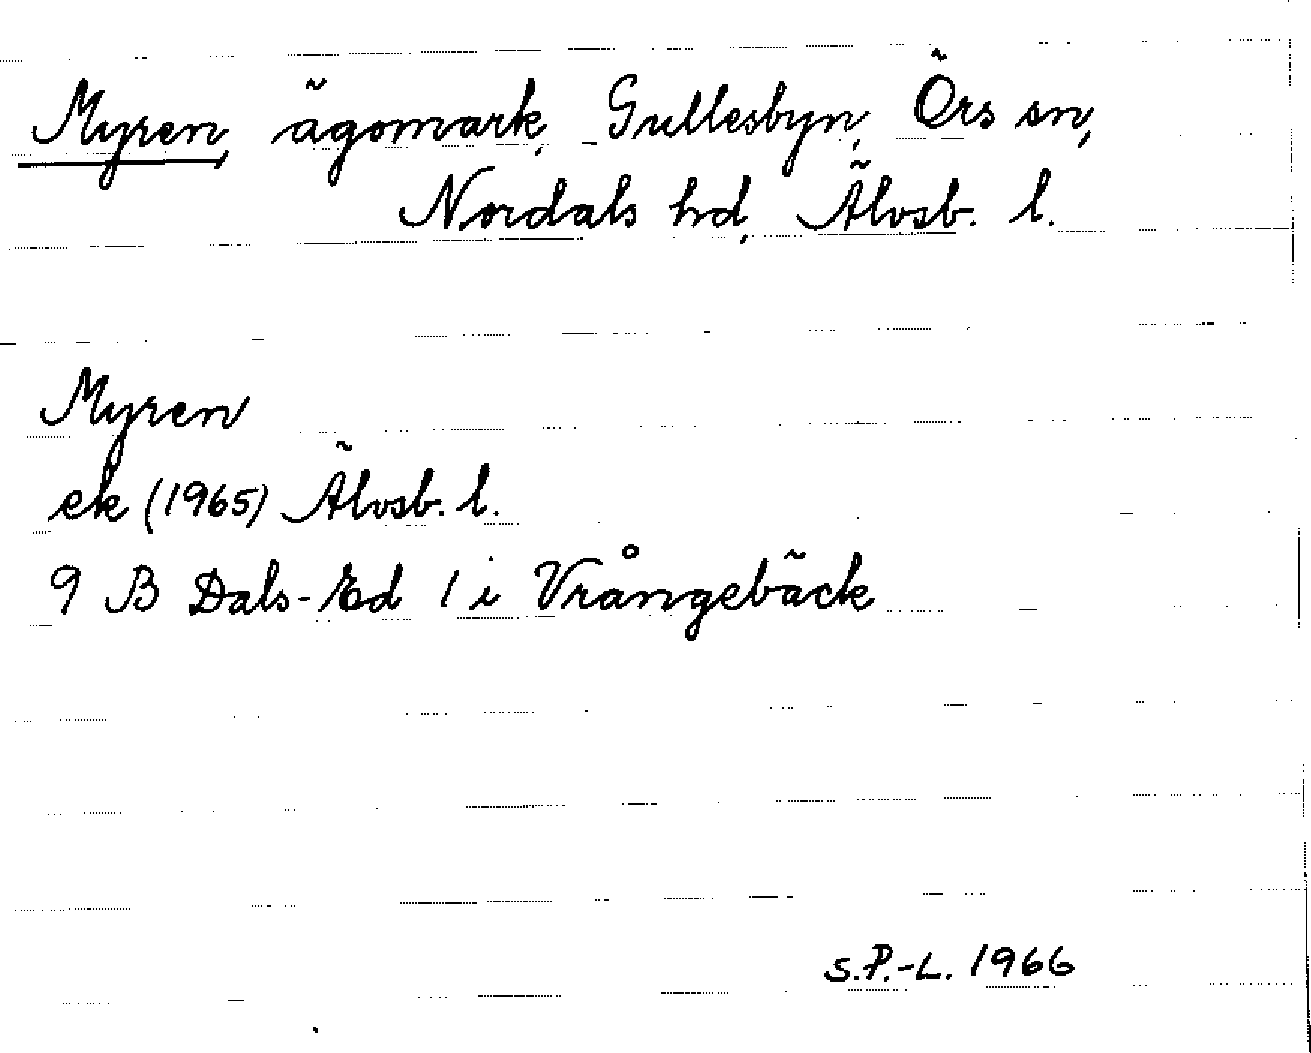 Myren, ägomark, Gullesbyn, Örs sn,
Nordals hd, Älvsb. l.
Myren
ek (1965) Älvsb. l.
9 B Dals-Ed 1 i Vrångebäck
S.P.-L. 1966